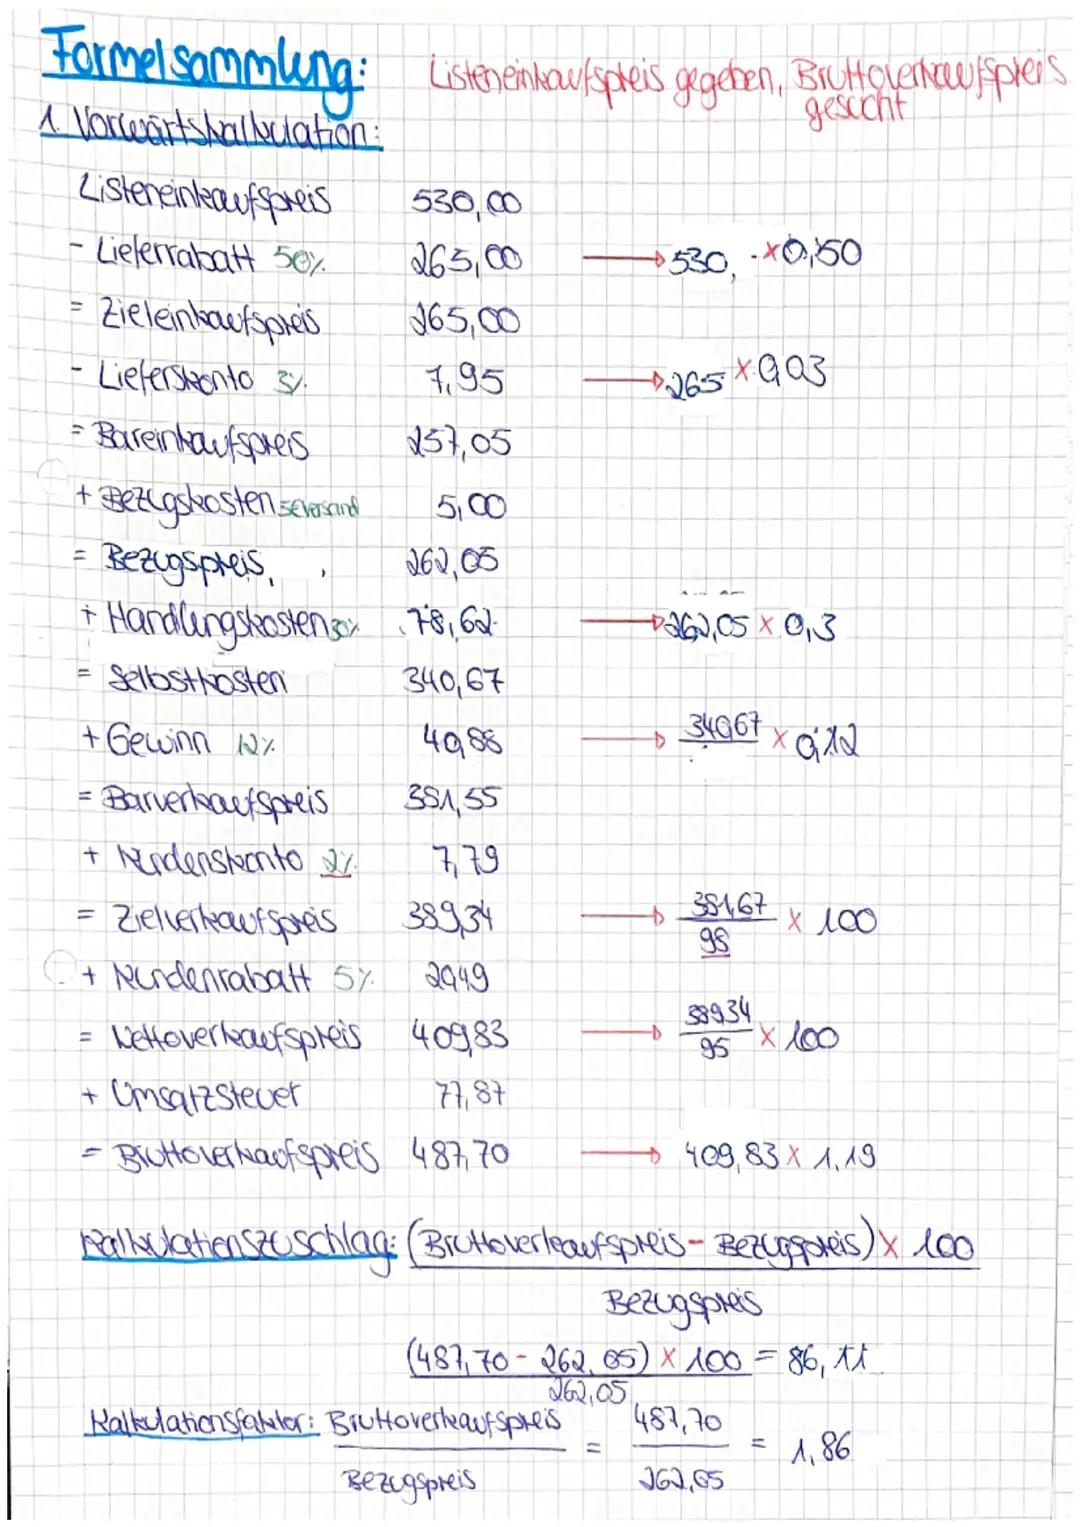 Formelsammlung:
Listeneinkaufspreis gegeben, Bruttoverkaufspreis
gesucht
1. Vorwärtskalkulation:
Listeneinkaufspreis 530,00
- Lieferrabatt 50% 265,00 → 530, - × 0,50
= Zieleinkaufspreis 265,00
- Lieferskonto 3% 7,95 → 265 × 0,03
= Bareinkaufspreis 257,05
+ Bezugskosten 5€ Versand 5,00
= Bezugspreis 262,05
+ Handlungskosten 30% 78,62 → 262,05 × 0,3
= Selbstkosten 340,67
+ Gewinn 12% 40,88 → 340,67 × 0,12
= Barverkaufspreis 381,55
+ Kundenskonto 2% 7,79
= Zielverkaufspreis 389,34 → 381,67 / 98 × 100
+ Kundenrabatt 5% 20,49
= Nettoverkaufspreis 409,83 → 389,34 / 95 × 100
+ Umsatzsteuer 77,87
= Bruttoverkaufspreis 487,70 → 409,83 × 1,19
Kalkulationszuschlag: (Bruttoverkaufspreis - Bezugspreis) × 100
Bezugspreis
(487,70 - 262,05) × 100 = 86,11
262,05
Kalkulationsfaktor: Bruttoverkaufspreis = 487,70 = 1,86
Bezugspreis 262,05